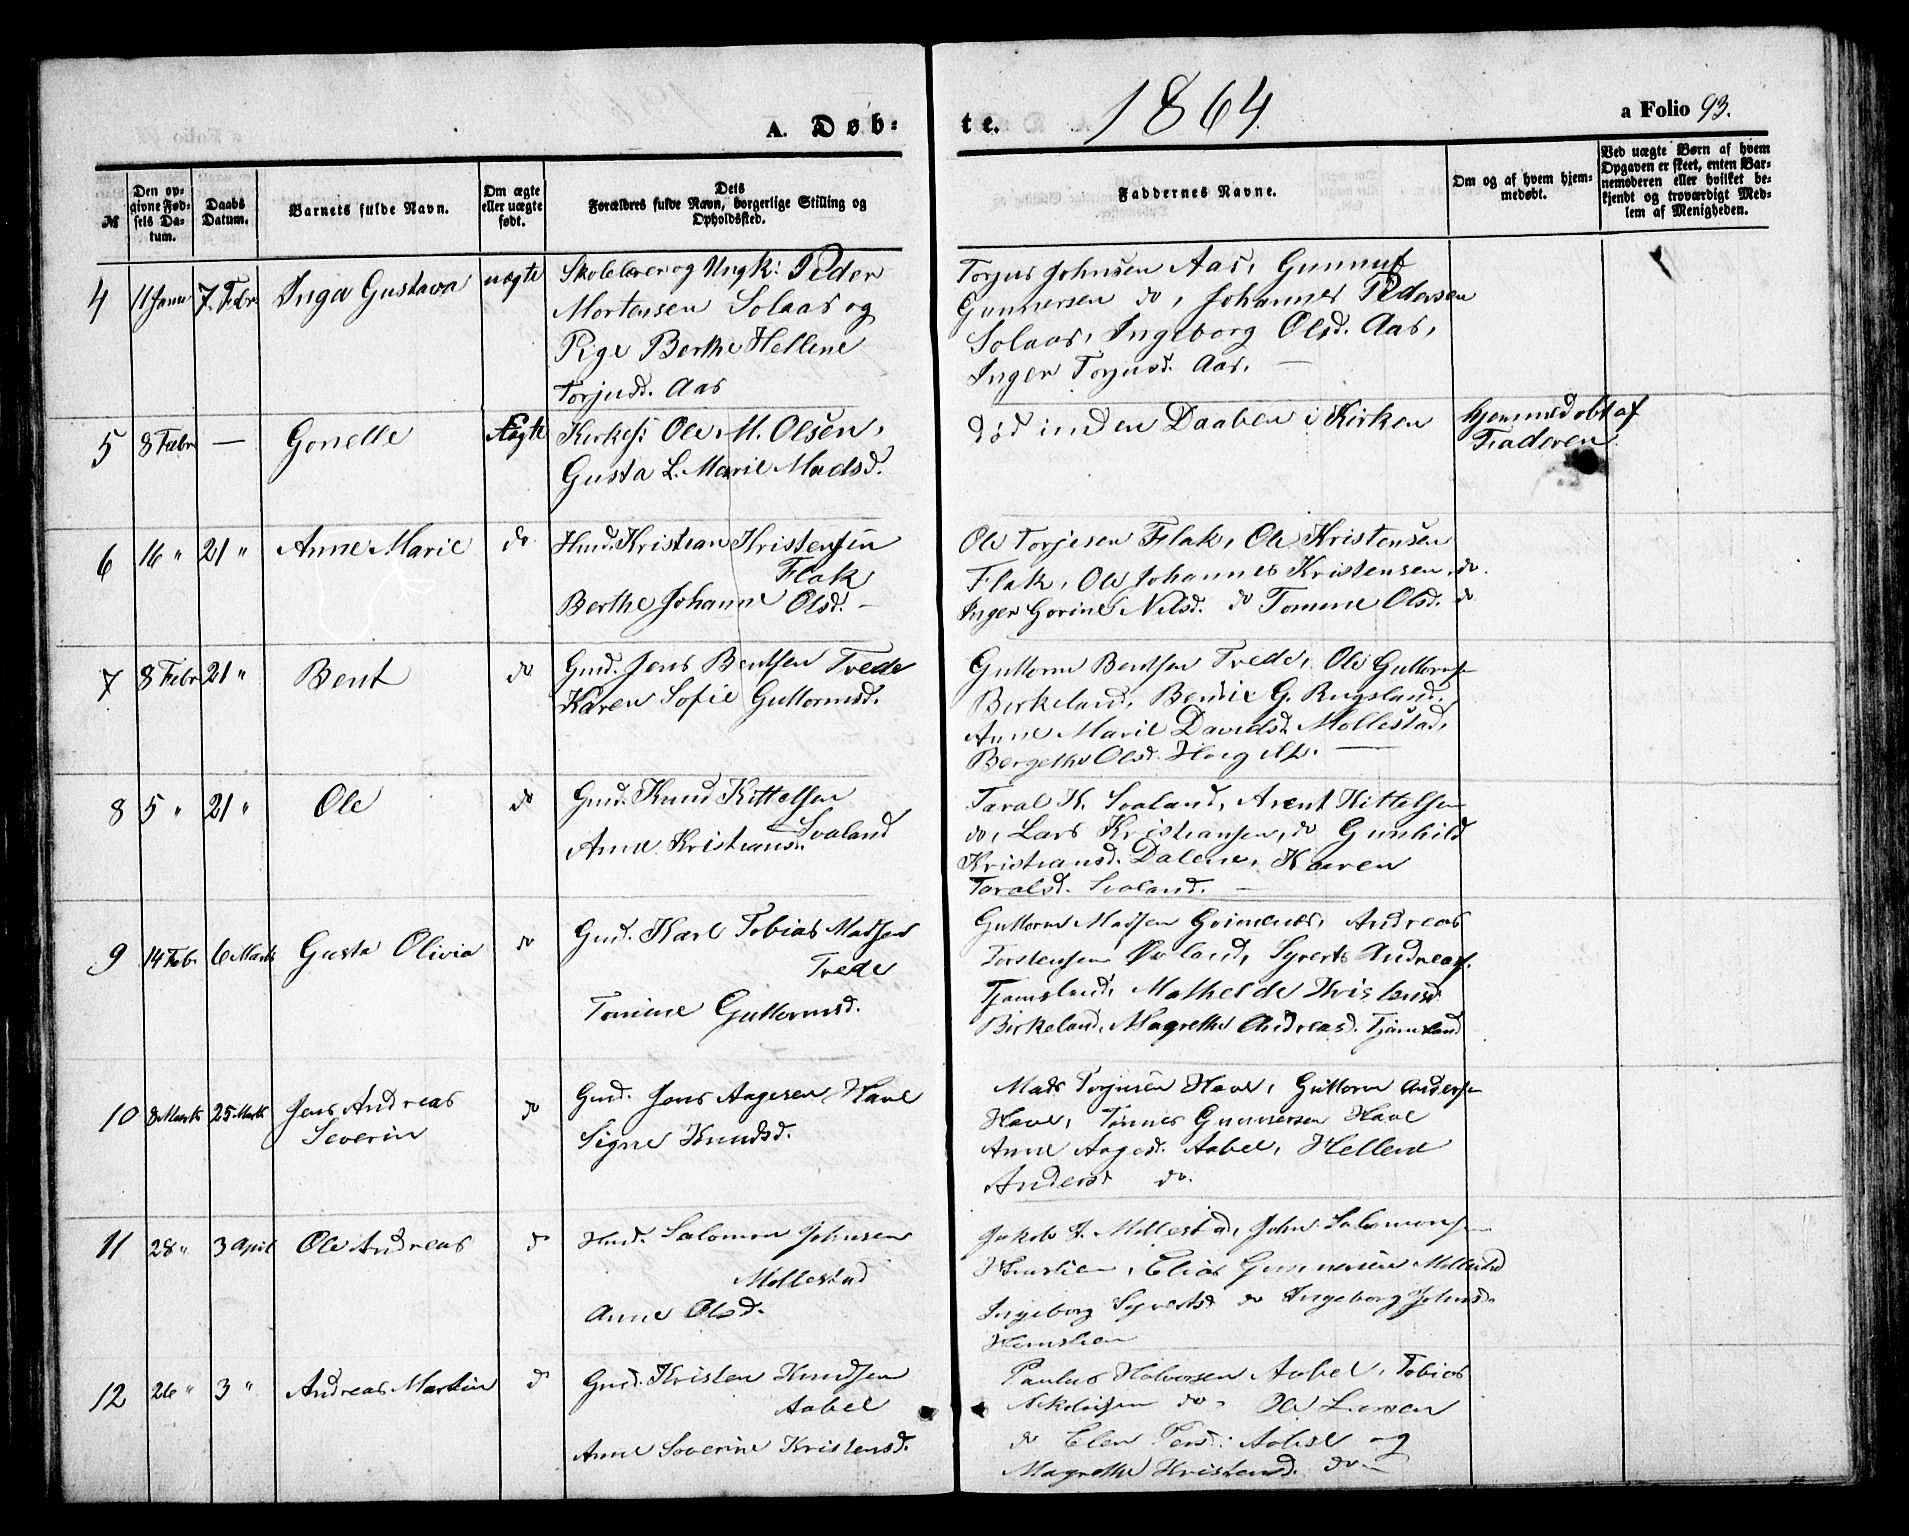 A. Døb-
te.
1864
a Folio 93.
№
Den opgivne Fødsels Datum.
Daabs Datum.
Barnets fulde Navn.
Om ægte eller uægte født.
Dets Forældres fulde Navn, borgerlige Stilling og Opholdssted.
Faddernes Navne.
Om og af hvem hjemmedøbt.
Ved uægte Børn af hvem Opgaven er skeet, enten Barnemoderen eller hvilket bekjendt og troværdigt Medlem af Menigheden.
4 11 Janu 7 Febr Inga Gustava uægte
Skolelærer og Ungk: Peder
Mortensen Solaas og
Pige Berthe Hellene
Torjusd. Aas
Torjus Johnsen Aas, Gunnuf
Gunnersen do, Johannes Pedersen
Solaas, Ingeborg Olsd. Aas,
Inger Torjusd. Aas. —
5 8 Febr — Gonelle Ægte
Kirkes: Ole M. Olsen,
Gusta L. Marie Madsd.
død inden Daaben i Kirken
hjemmedøbt af
Faderen
6 16 " 21 " Anne Marie do
Hmd. Kristian Kristensen
Flak
Berthe Johanne Olsd. —
Ole Torjesen Flak, Ole Kristensen
Flak, Ole Johannes Kristensen do.
Inger Gorine Nilsd. do Tomine Olsd. do
7 8 Febr 21 " Bent do
Gmd. Jens Bentsen Trede
Karen Sofie Guttormsd.
Guttorm Bentsen Trede, Ole Guttorms.
Birkeland, Bendix G. Rugsland,
Anne Marie Davidsd. Mollestad,
Bergethe Olsd.
8 5 " 21 " Ole do
Gmd. Knud Kittelsen
Svaland
Anne Kristiansd.
Taral K. Svaland, Arent Kittelsen
do, Lars Kristiansen, do Gunhild
Kristiansd. Dalene, Karen
Taralsd. Svaland. —
9 14 Febr 6 Marts Gusta Olivia do
Gmd. Karl Tobias Madsen
Trede
Tomine Guttormsd.
Guttorm Madsen Grimenes, Andreas
Torstensen Øvland, Syvert Andreas.
Tjømsland, Mathelde Kristensd
Birkeland, Magrethe Andreasd. Tjømsland
10 8 Marts 25 Marts Jens Andreas
Severin
do
Gmd. Jens Aagesen Have
Signe Knudsd.
Mads Torjusen Have, Guttorm Andersen
Have, Tønnes Gunnersen Have
Anne Aagesd. Aabel, Hellene
Andersd do.
11 28 " 3 April Ole Andreas d
Hmd. Salomon Johnsen
Mollestad
Anne Olsd.
Jakob A. Mollestad, John Salomonsen
Hamslien, Elias Gunnersen Mollestad
Ingeborg Syvertsd do Ingeborg Johnsd.
Hamslien
12 26 " 3 " Andreas Martin d
Gmd. Kristen Knudsen
Aabel
Anne Severine Kristensd.
Paulus Halvorsen Aabel, Tobias
Nikolaisen do, Ole Larsen
do Elen Persd. Aabel og
Magrethe Kristensd. do —